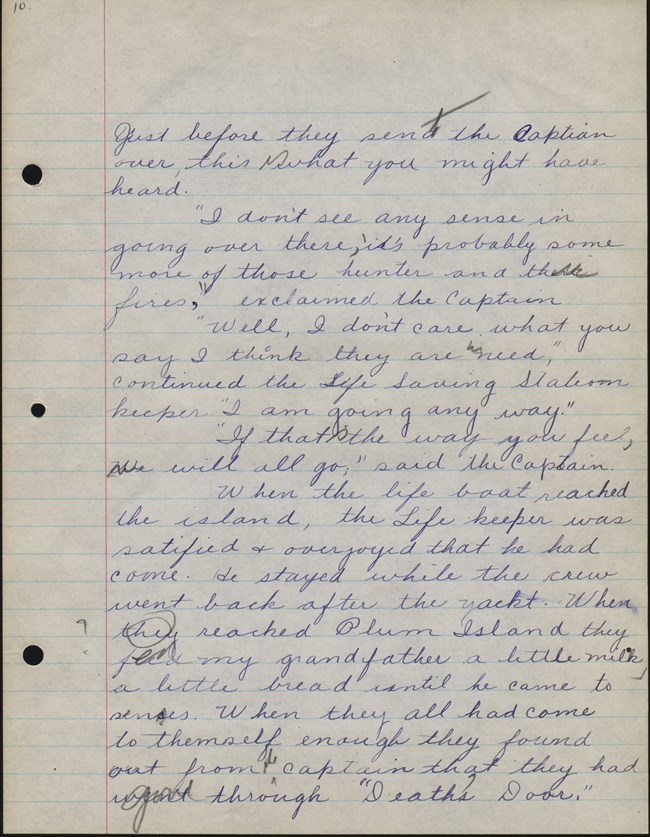 10.
Just before they sent the Captian
over, this is what you might have
heard.
"I don't see any sense in
going over there, it's probably some
more of those hunter and their
fires," exclaimed the Captain
"Well, I don't care what you
say I think they are in need,"
continued the Life Saving Station
keeper "I am going any way."
"If that's the way you feel,
we will all go," said the Captain.
When the life boat reached
the island, the Life keeper was
satified & overjoyed that he had
come. He stayed while the crew
went back after the yacht. When
? they reached Plum Island they
fed my grandfather a little milk,
a little bread until he came to
senses. When they all had come
to themself enough they found
out from the captain that they had
gone through "Death's Door."